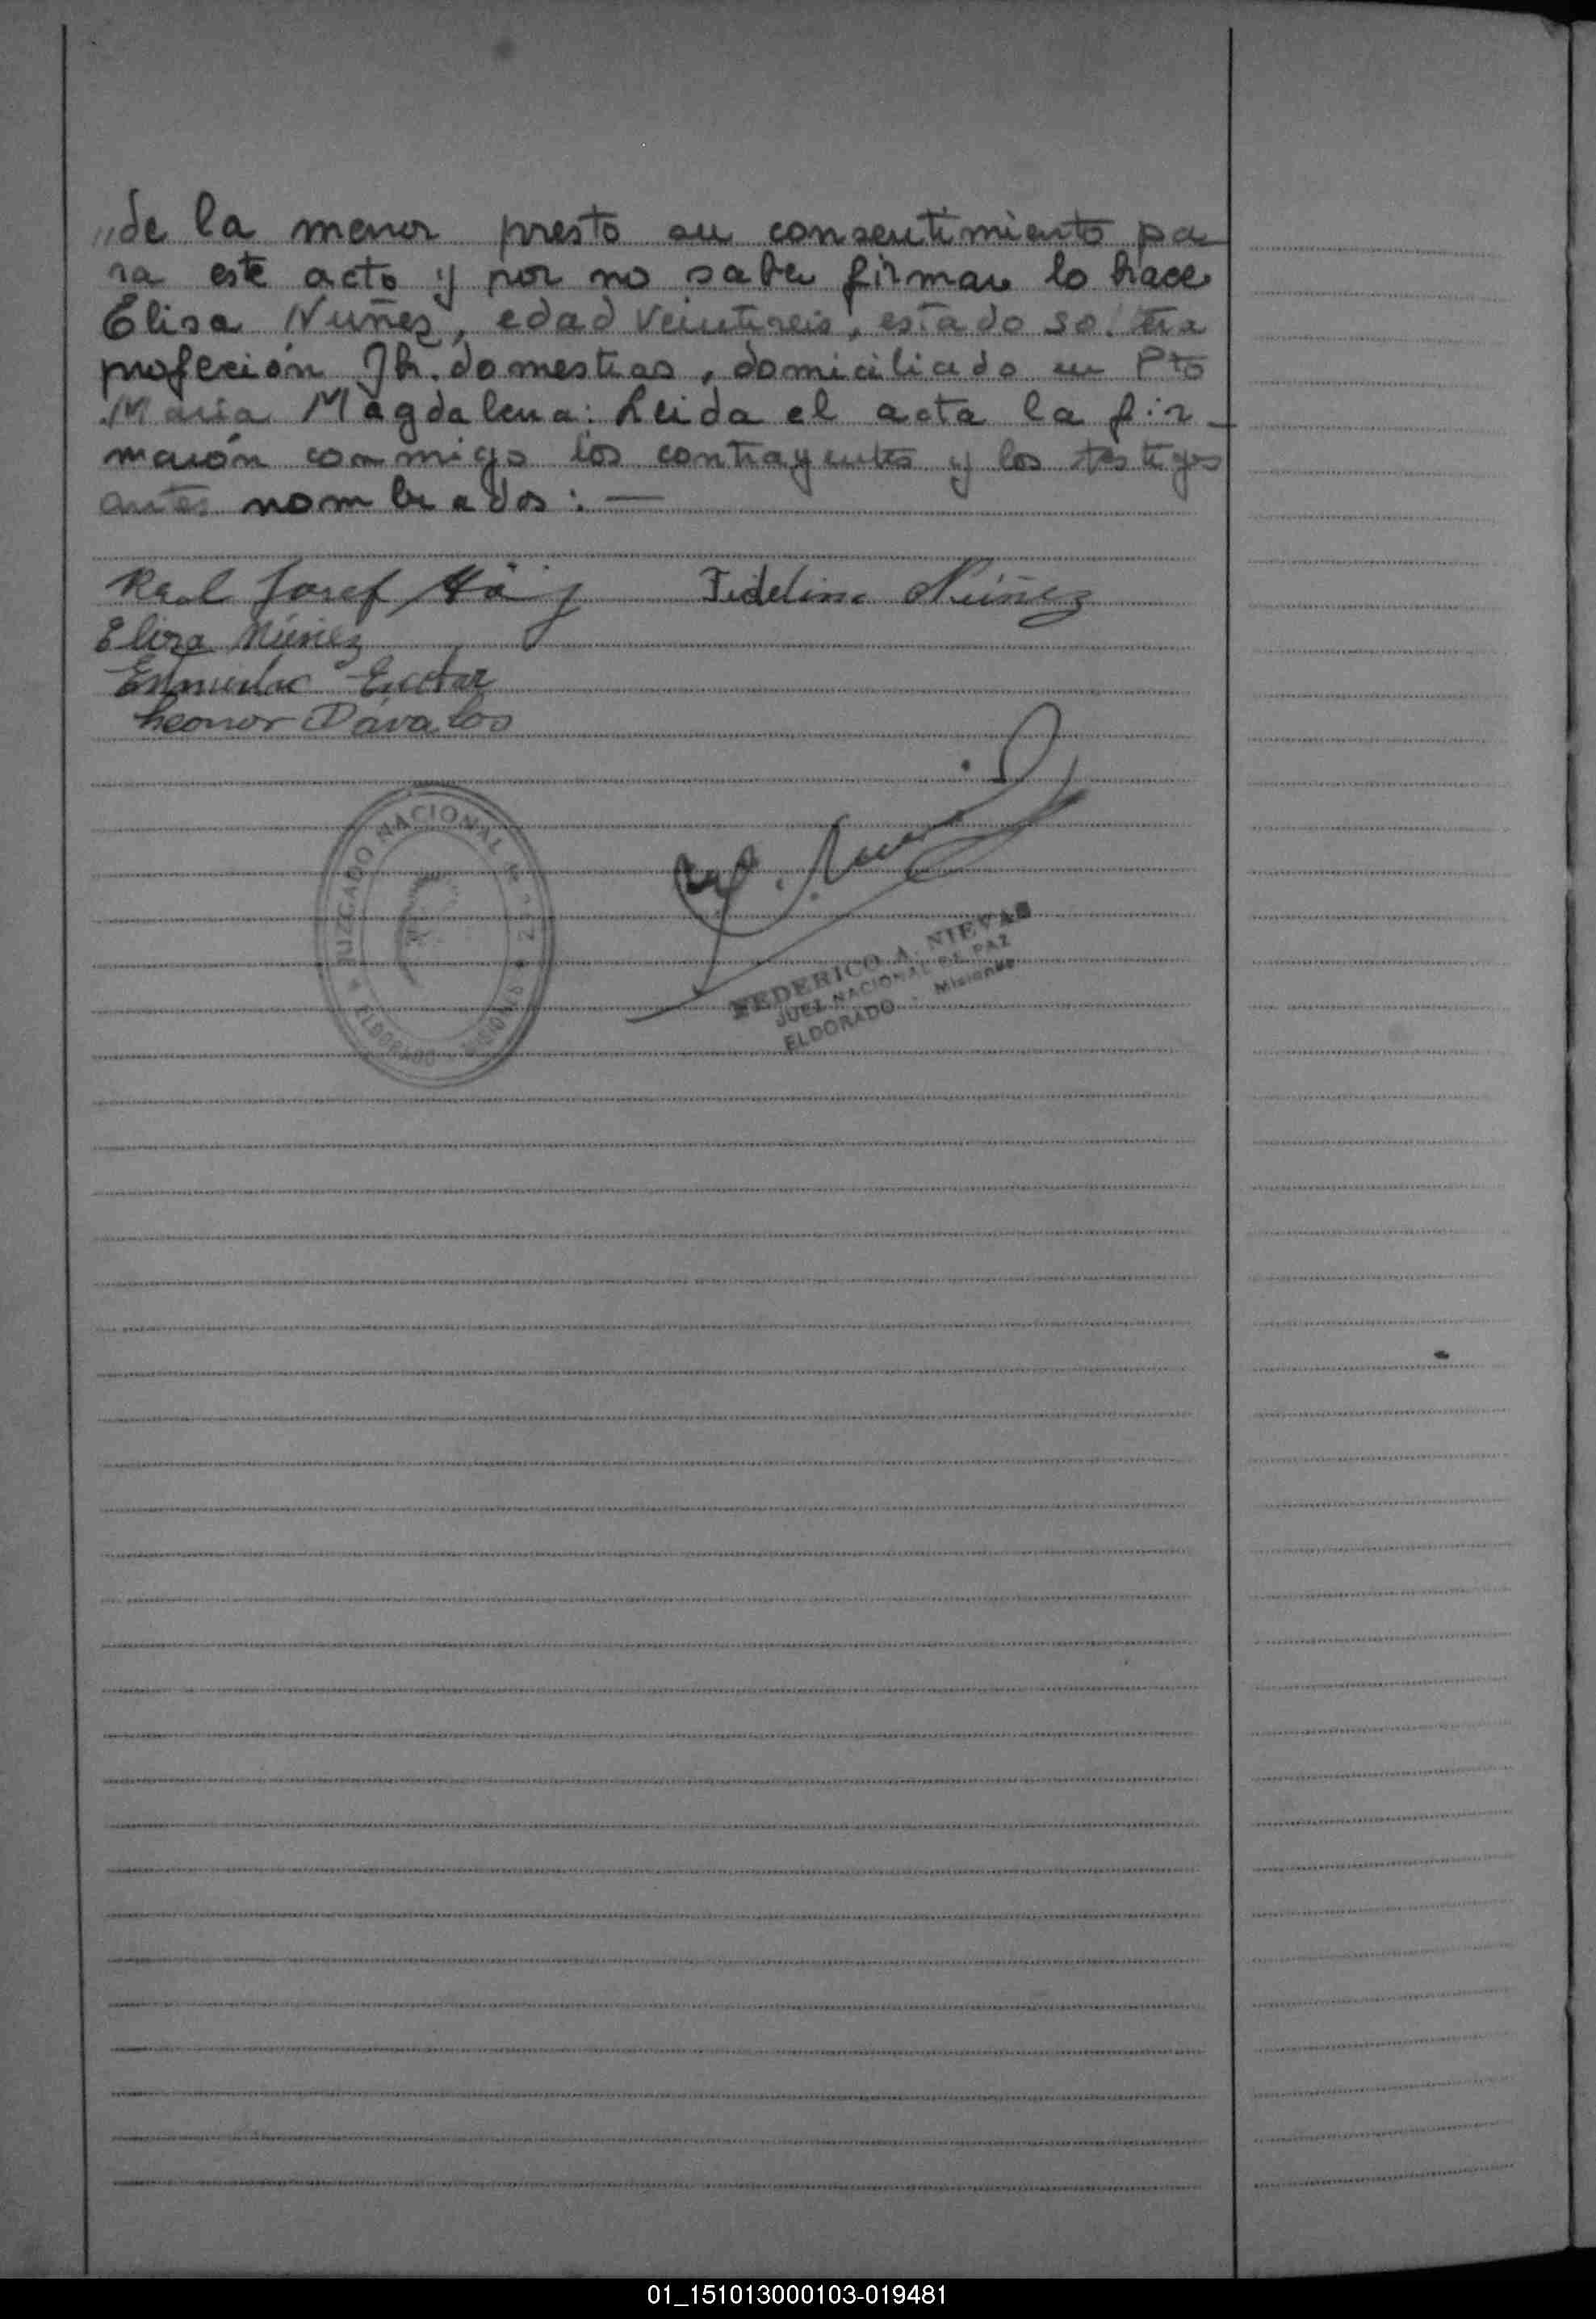 "de la menor presto su consentimiento pa
ra este acto y por no saber firmar lo hace
Elisa Nuñez, edad veintiseis, estado soltera
profesión Qh. domesticos, domiciliada en Pto
Maria Magdalena: Leida el acta la fir-
marón conmigo los contrayentes y los testigos
antes nombrados: —
Karl Josef Fidelina Núñez
Elisa Núñez
Escobar
Leonor Dávalos
JUZGADO NACIONAL DE PAZ
ELDORADO MISIONES
FEDERICO A. NIEVAS
JUEZ NACIONAL DE PAZ
ELDORADO - Misiones
01_151013000103-019481